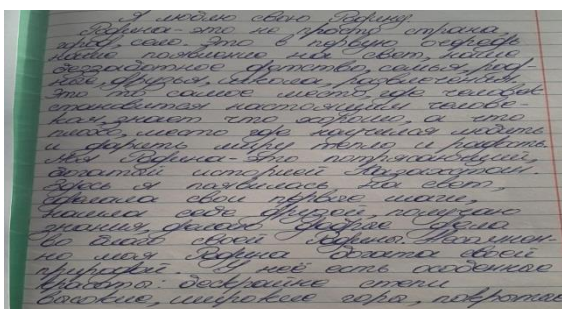 Я люблю свою Родину.
Родина - это не просто страна,
город, село. Это в первую очередь
наше появление на свет, наше
беззаботное детство, семья, род-
ные, друзья, школа, развлечения,
это то самое место, где человек
становится настоящим челове-
ком, знает что хорошо, а что
плохо, место где научился любить
и дарить миру тепло и радость.
Моя Родина - это потрясающий,
богатый историей Казахстан.
Здесь я появилась на свет,
сделала свои первые шаги,
нашла себе друзей, получаю
знания, делаю добрые дела
во благо своей Родины. Несомнен-
но моя Родина богата своей
природой. У неё есть особенные
красоты: бескрайние степи
высокие, широкие горы, покрытые